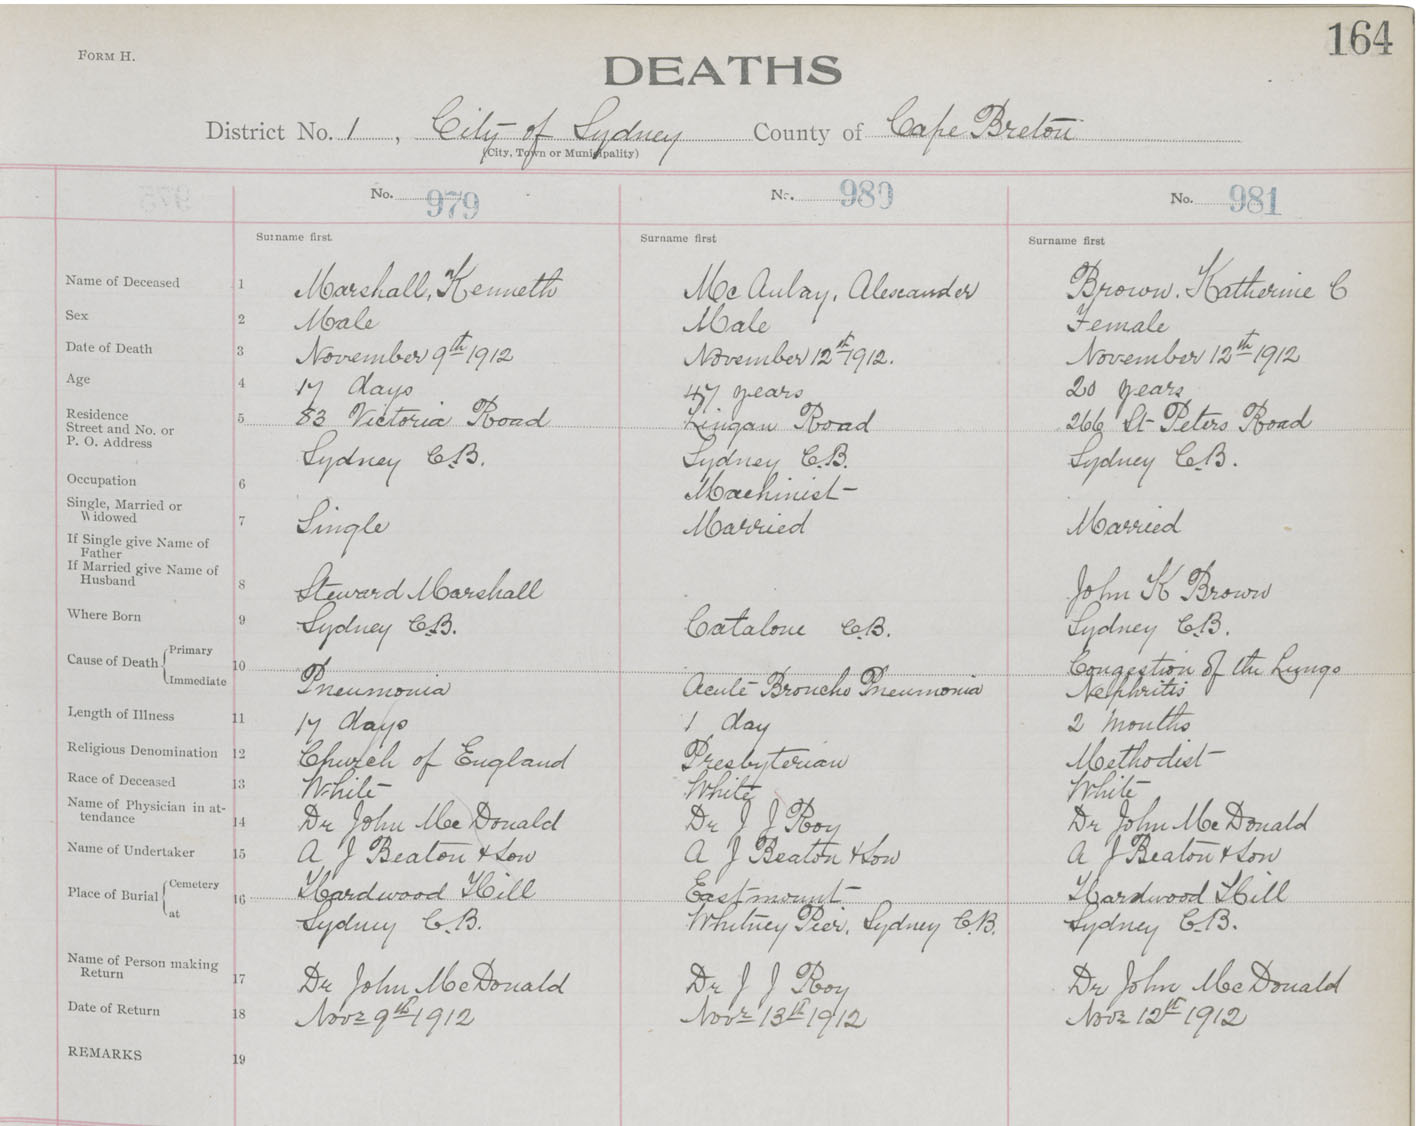 164
FORM H.
DEATHS
District No. 1, City of Sydney County of Cape Breton
(City, Town or Municipality)
No. 979 No. 980 No. 981
Surname first Surname first Surname first
Name of Deceased 1 Marshall, Kenneth Mc Aulay, Alexander Brown. Katherine C
Sex 2 Male Male Female
Date of Death 3 November 9th 1912 November 12th 1912. November 12th 1912
Age 4 17 days 47 years 20 years
Residence Street and No. or P. O. Address 5 83 Victoria Road Lingan Road 266 St Peters Road
Sydney C.B. Sydney C.B. Sydney C.B.
Occupation 6 Machinist
Single, Married or Widowed 7 Single Married Married
If Single give Name of Father
If Married give Name of Husband 8 Steward Marshall John K Brown
Where Born 9 Sydney C.B. Catalone C.B. Sydney C.B.
Cause of Death Primary 10 Congestion of the Lungs
Immediate Pneumonia Acute Broncho Pneumonia Nephritis
Length of Illness 11 17 days 1 day 2 months
Religious Denomination 12 Church of England Presbyterian Methodist
Race of Deceased 13 White White White
Name of Physician in attendance 14 Dr John McDonald Dr J J Roy Dr John McDonald
Name of Undertaker 15 A J Beaton & Son A J Beaton & Son A J Beaton & Son
Place of Burial Cemetery 16 Hardwood Hill Eastmount Hardwood Hill
at Sydney C.B. Whitney Pier, Sydney C.B. Sydney C.B.
Name of Person making Return 17 Dr John McDonald Dr J J Roy Dr John McDonald
Date of Return 18 Novr 9th 1912 Novr 13th 1912 Novr 12th 1912
REMARKS 19